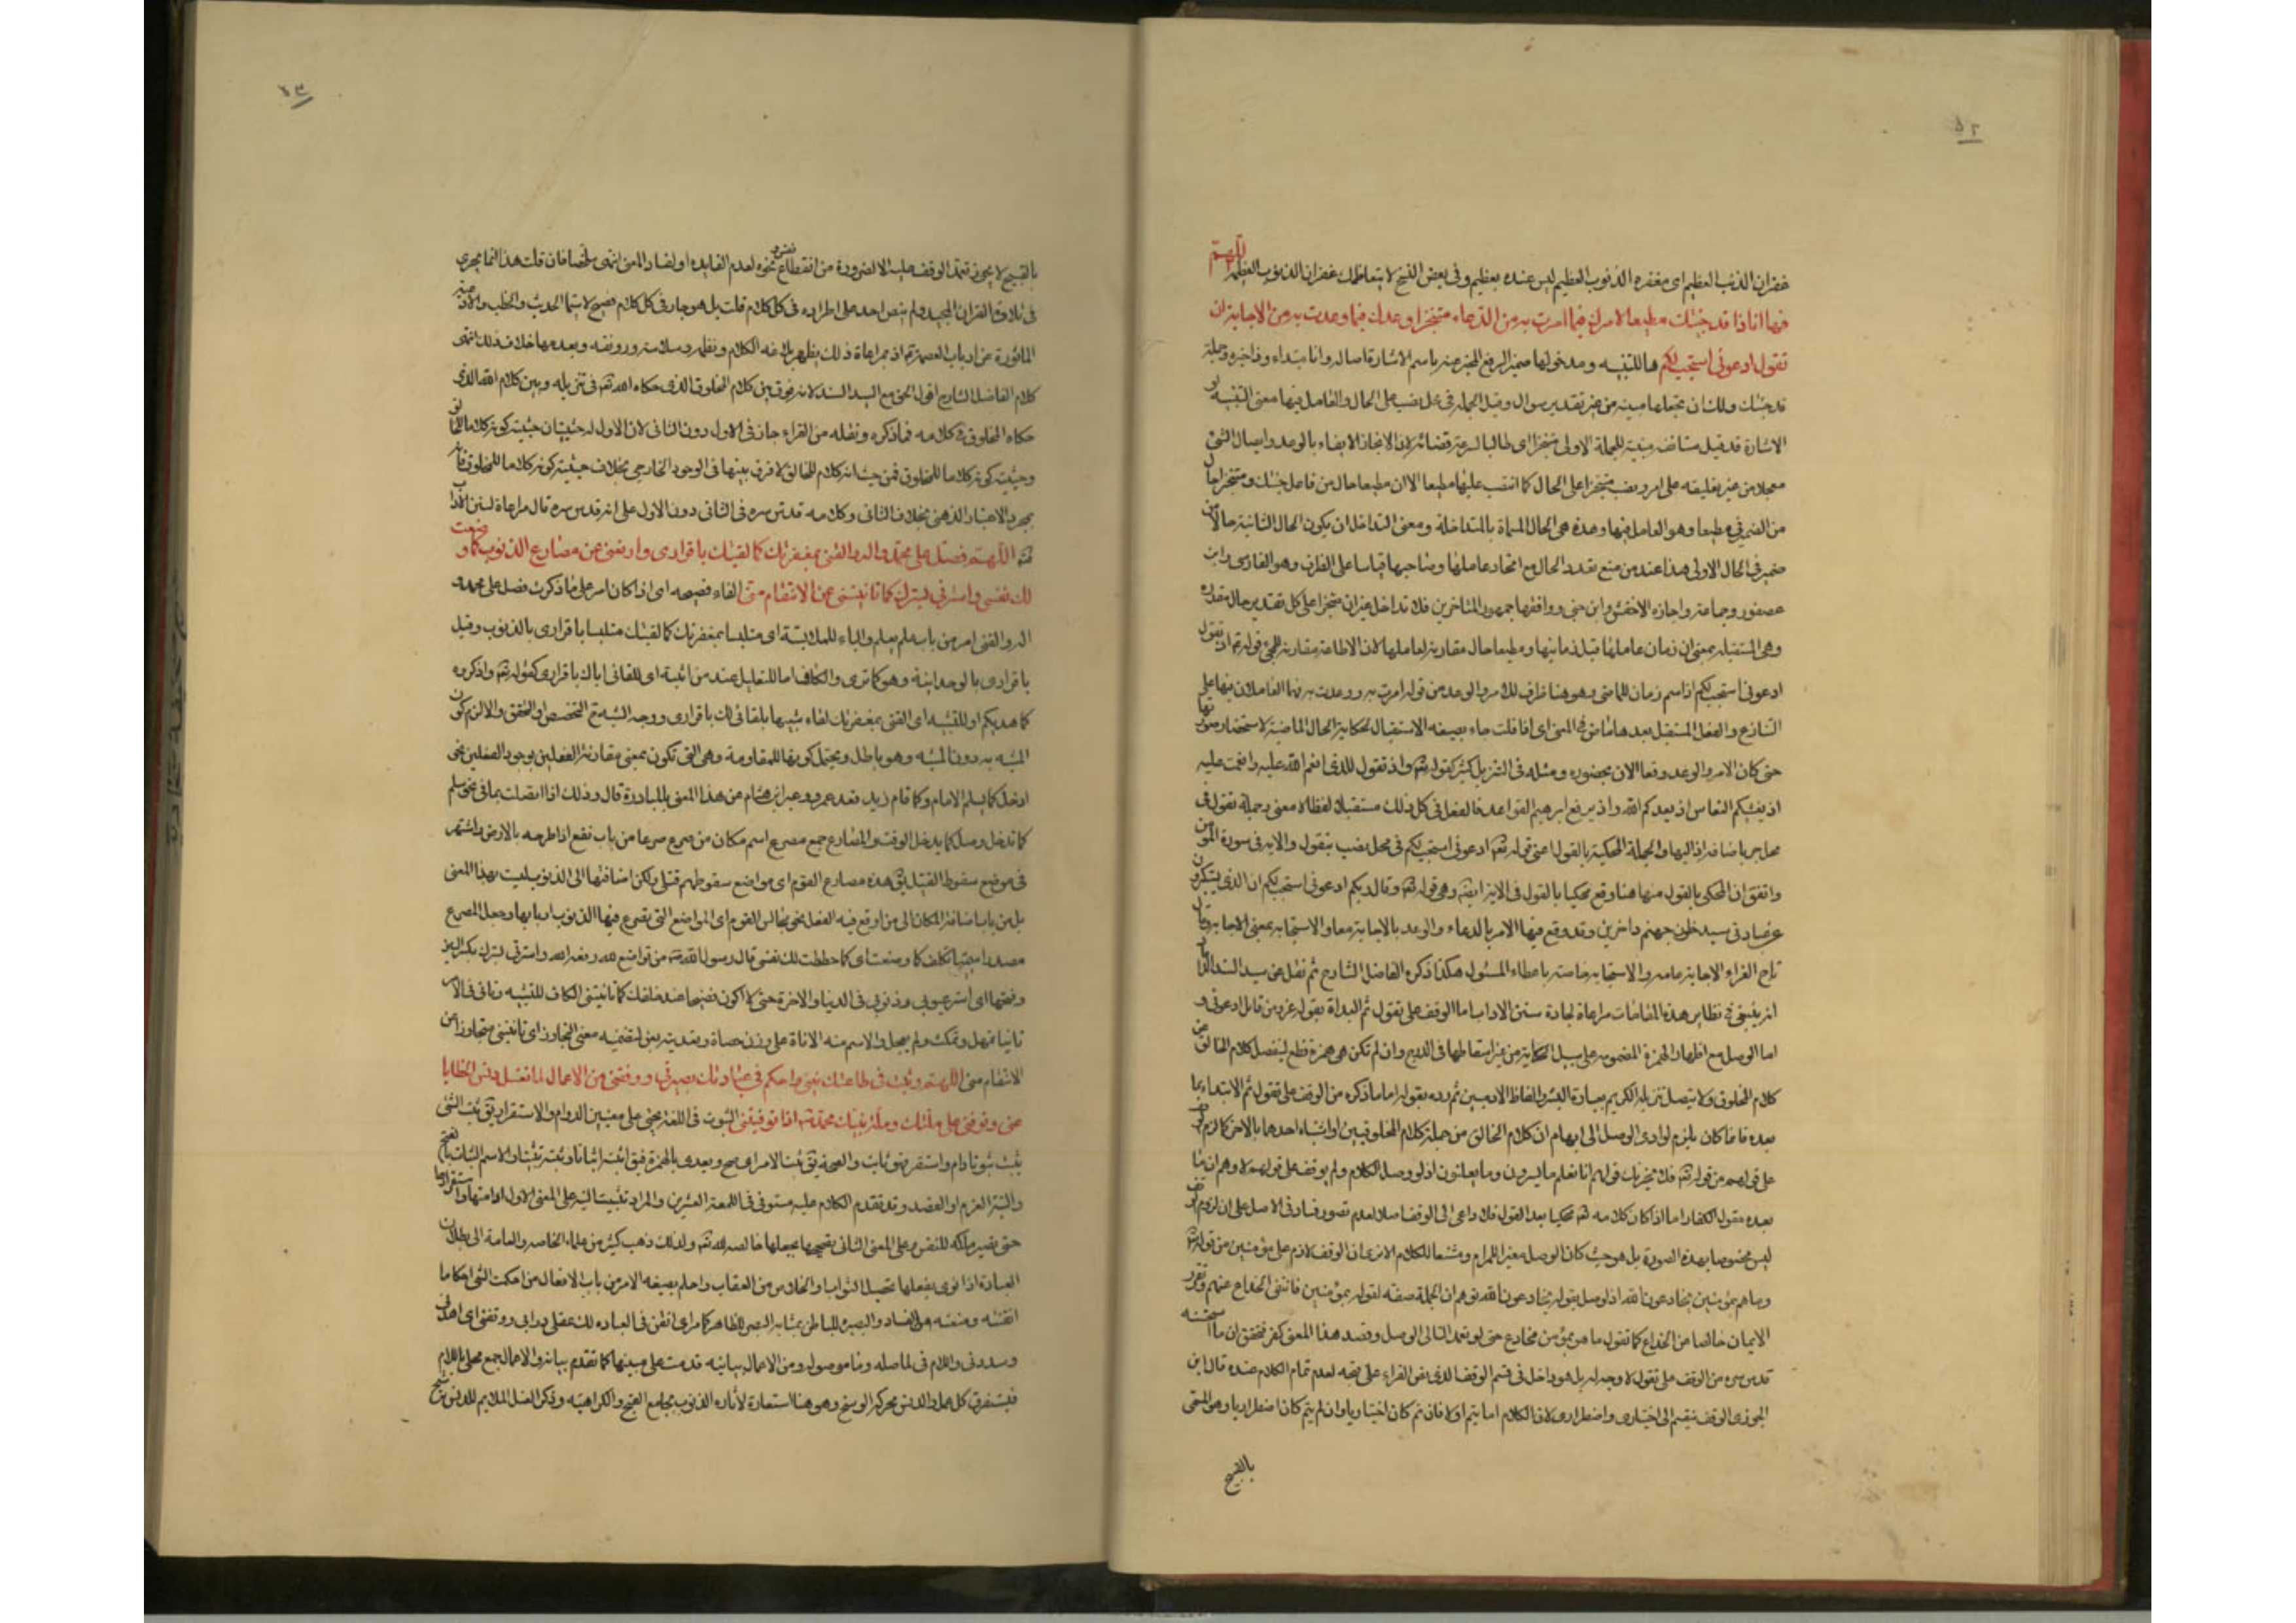 ٥٢
غفران الذنب العظيم اى مغفره الذنوب العظيم ليس عنده بعظيم وفى بعض النسخ لا يتعاظمك غفران الذنوب العظيمه اللهم
فها انا ذا قد جئتك مطيعا لامرك فيما امرت به من الدعاء متنجزا وعدك فيما وعدت به من الاجابة اذ
تقول ادعونى استجب لكم ها للتنبيه ومدخولها ضمير الرفع المخبر عنه باسم الاشارة اصاله وانا مبتداء وذا خبره وجملة
قد جئتك ولك ان تجعلها مبينه من غير تقدير سوال وقيل الجمله فى محل نصب على الحال والعامل فيها معنى التنبيه او
الاشارة قد قيل مستانفه مبينة للجملة الاولى متنجزا اى طالبا لسرعة قضائه لان الانجاز الايفاء بالوعد وايصال الشئ
معجلا من غير تعليقه على امر ونصب متنجزا على الحال كما انتصب عليها مطيعا الا ان مطيعا حال من فاعل جئتك ومتنجزا حال
من الضمير فى مطيعا وهو العامل فيها وهذه هى الحال المسماة بالمتداخلة ومعنى التداخل ان يكون الحال الثانية حالا من
ضمير فى الحال الاولى هذا عند من منع تعدد الحال مع اتحاد عاملها وصاحبها قياسا على الظرف وهو الفارسى وابن
عصفور وجماعة واجازه الاخفش وابن جنى ووافقهما جمهور المتاخرين فلا تداخل غير ان متنجزا على كل تقدير حال مقدره
وهى المستقبله بمعنى ان زمان عاملها قبل زمانها ومطيعا حال مقارنه لعاملها لان الاطاعة مقارنة للمجئ قوله تع اذ تقول
ادعونى استجب لكم اذ اسم زمان للماضى وهو هنا ظرف للامر والوعد من قوله امرت به ووعدت به فهما العاملان فيها على
التنازع والفعل المستقبل بعدها ماض فى المعنى اى اذ قلت جاء بصيغه الاستقبال لحكاية الحال الماضية لاستحضار صورتها
حتى كان الامر والوعد وقعا الان بحضوره ومثله فى التنزيل كثير كقوله تعه واذ تقول للذى انعم الله عليه وانعمت عليه
اذ يغشيكم النعاس اذ يعدكم الله واذ يرفع ابرهيم القواعد فالفعل فى كل ذلك مستقبل لفظا لا معنى وجملة تقول فى
محل جر باضافه اذ اليها والجملة المحكية بالقول اعنى قوله تعه ادعونى استجب لكم فى محل نصب بتقول والايه فى سورة المومن
واتفق ان المحكى بالقول منها هنا وقع محكيا بالقول فى الايه ايضه وهى قوله تعه وقال ربكم ادعونى استجب لكم ان الذين يستكبرون
عن عبادتى سيدخلون جهنم داخرين وقد وقع فيها الامر بالدعاء والوعد بالاجابة معا والاستجابه بمعنى الاجابه وقال
تاج القراء الاجابة عامه والاستجابه خاصه باعطاء المسئول هكذا ذكره الفاضل الشارح ثم نقل عن سيد السند الداماد
انه ينبغى فى نظاير هذه المقامات مراعاة لجادة سنن الاداب اما الوقف على تقول ثم البداة بقوله عز وجل من قائل ادعونى و
اما الوصل مع اظهار الهمزة المضمومه على سبيل الحكاية من غير اسقاطها فى الدرج وان لم تكن هى همزة قطع ليفصل كلام الخالق عن
كلام المخلوق ولا يتصل تنزيله الكريم بعبارة البشر والفاظ الادميين ثم رده بقوله اما ما ذكره من الوقف على تقول ثم الابتداء بما
بعده فانما كان يلزم لو ادى الوصل الى ايهام ان كلام الخالق من جملة كلام المخلوقين او اشتباه احدهما بالاخر كما لزم الوقف
على قولهم من قوله تعه فلا يحزنك قولهم انا نعلم ما يسرون وما يعلنون اذ لو وصل الكلام ولم يوقف على قولهم لاوهم ان ما
بعده مقول الكفار اما اذا كان كلامه تعه محكيا بعد القول فلا داعى الى الوقف اصلا لعدم تصور فساد فى الاصل على ان لزوم الوقف
ليس مخصوصا بهذه الصورة بل هو حيث كان الوصل مغيرا للمرام ومشنعا للكلام الا ترى ان الوقف لازم على مؤمنين من قوله تعه
وما هم بمؤمنين يخادعون الله اذ لو وصل بقوله يخادعون الله توهم ان الجملة صفة لقوله بمؤمنين فانتفى الخداع عنهم وتقرر
الايمان خالصا عن الخداع كما تقول ما هو بمؤمن مخادع حتى لو تعمد التالى الوصل وقصد هذا المعنى كفر فتحقق ان ما استحسنه
قدس سره من الوقف على تقول لا وجه له بل هو داخل فى قسم الوقف الذى نص القراء على قبحه لعدم تمام الكلام عنده قال ابن
الجوزى الوقف ينقسم الى اختيارى واضطرارى لان الكلام اما يتم او لا فان تم كان اختياريا وان لم يتم كان اضطراريا وهو المسمى
بالقبيح
٥٣
بالقبيح لا يجوز تعمد الوقف عليه الا لضرورة من انقطاع نفس ونحوه لعدم الفايده او لفساد المعنى انتهى ملخصا فان قلت هذا انما يجرى
فى تلاوة القران المجيد ولم ينص احد على اطراده فى كل كلام قلت بل هو جار فى كل كلام فصيح لا سيما الحديث والخطب والادعيه
الماثورة عن ارباب العصمة تع اذ بمراعاة ذلك يظهر بلاغه الكلام ونظمه وسلاسته ورونقه وبعدمها خلاف ذلك انتهى
كلام الفاضل الشارح اقول الحق مع السيد السند لانه فرق بين كلام المخلوق الذى حكاه الله تعه فى تنزيله وبين كلام الله الذى
حكاه المخلوق فى كلامه فما ذكره ونقله من القراء جاز فى الاول دون الثانى لان الاول له حيثيتان حيثية كونه كلاما للخالق
وحيثية كونه كلاما للمخلوق فمن حيث انه كلام للخالق لا فرق بينهما فى الوجود الخارجى بخلاف حيثية كونه كلاما للمخلوق فانه
بمجرد الاعتبار الذهنى بخلاف الثانى وكلامه قدس سره فى الثانى دون الاول على انه قدس سره قال مراعاة لسنن الاداب
اللهم فصل على محمد واله والقنى بمغفرتك كما لقيتك باقرارى وارفعنى عن مصارع الذنوب كما وضعت
لك نفسى واسترنى بسترك كما تانيتنى عن الانتقام منى الفاء فصيحه اى اذا كان الامر على ما ذكرت فصل على محمد و
اله والقنى امر من باب علم يعلم والباء للملابسة اى متلبسا بمغفرتك كما لقيتك متلبسا باقرارى بالذنوب وقيل
باقرارى بالوحدانية وهو كما ترى والكاف اما للتعليل عند من اثبته اى للقائى اياك باقرارى كقوله تعه واذكروه
كما هديكم او للتشبيه اى القنى بمغفرتك لقاء شبيها بلقائى لك باقرارى ووجه الشبه التخصيص او التحقق والا لزم كون
المشبه به دون المشبه وهو باطل ويحتمل كونها للمقاومة وهى التى تكون بمعنى مقارنة الفعلين بوجود الفعلين نحو
ادخل كما يسلم الامام وكما قام زيد قعد عمرو وعبر ابن هشام عن هذا المعنى بالمبادرة قال وذلك اذا اتصلت بما فى نحو سلم
كما تدخل وصل كما يدخل الوقت والمصارع جمع مصرع اسم مكان من صرع صرعا من باب نفع اذا طرحه بالارض واشتهر
فى موضع سقوط القتيل يق هذه مصارع القوم اى مواضع سقوطهم قتلى ولكن اضافتها الى الذنوب ليست بهذا المعنى
بل من باب اضافة المكان الى من اوقع فيه الفعل نحو مجالس القوم اى المواضع التى يصرع فيها الذنوب اربابها وجعل المصرع
مصدرا ميميا تكلف كما وضعت اى كما حططت لك نفسى قال رسول الله صه من تواضع لله رفعه الله واسترنى بسترك بكسر السين
وفتحها اى استر عيوبى وذنوبى فى الدنيا والاخرة حتى لا اكون فضيحا عند خلقك كما تانيتنى الكاف للتشبيه وتانى فى الامر
تانيا تمهل وتمكث ولم يعجل والاسم منه الاناة على وزن حصاة وتعديته بعن لتضمينه معنى التجاوز اى تانيتنى متجاوزا عن
الانتقام منى اللهم وثبت فى طاعتك نيتى واحكم فى عبادتك بصيرتى ووفقنى من الاعمال لما تغسل به دنس الخطايا
عنى وتوفنى على ملتك وملة نبيك محمد صه اذا توفيتنى الثبوت فى اللغة يجئ على معنيين الدوام والاستقرار يق ثبت الشئ
يثبت ثبوتا دام واستقر فهو ثابت والصحه يق ثبت الامر اى صح ويعدى بالهمزة فيق اثبته اثباتا وثبته تثبيتا والاسم الثبات بالفتح
والنية العزم او القصد وقد تقدم الكلام عليه مستوفى فى اللمعة العشرين والمراد تثبيت النية على المعنى الاول ادامتها واستقرارها
حتى تصير ملكه للنفس وعلى المعنى الثانى تصحيحها بجعلها خالصه لله تعه ولذلك ذهب كثير من علماء الخاصه والعامة الى بطلان
العبادة اذا نوى بفعلها تحصيل الثواب او الخلاص من العقاب واحكم بصيغه الامر من باب الافعال من احكمت الشئ احكاما
اتقنته ومنعته من الفساد والبصيره للباطن بمثابه البصر للظاهر كما مر اى اتقن فى العباده لك عقلى ووفقنى اى اهدنى
وسددنى واللام فى لما صله وما موصوله ومن الاعمال بيانيه قدمت على مبينها كما تقدم بيانه والاعمال جمع محلى باللام
فيستغرق كل عمل والدنس محركه الوسخ وهو هنا استعارة لاثار الذنوب بجامع القبح والكراهيه وذكر الغسل الملايم للدنس ترشيح